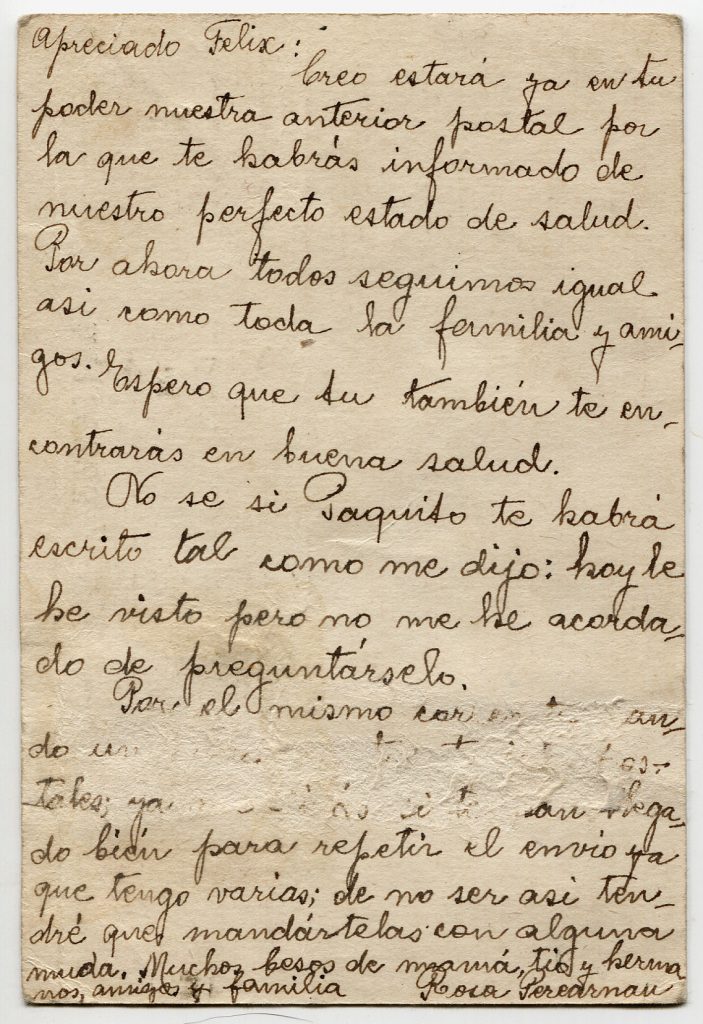 Apreciado Felix:
Creo estará ya en tu
poder nuestra anterior postal por
la que te habrás informado de
nuestro perfecto estado de salud.
Por ahora todos seguimos igual
asi como toda la familia y ami-
gos. Espero que tu también te en-
contrarás en buena salud.
No se si Paquito te habrá
escrito tal como me dijo: hoy le
he visto pero no me he acorda-
do de preguntárselo.
Por el mismo
do
tales; ya si llega-
do bién para repetir el envio ya
que tengo varias; de no ser asi ten-
dré que mandártelas con alguna
muda. Muchos besos de mamá, tio y herma
nos, amigos y familia Rosa Perearnau